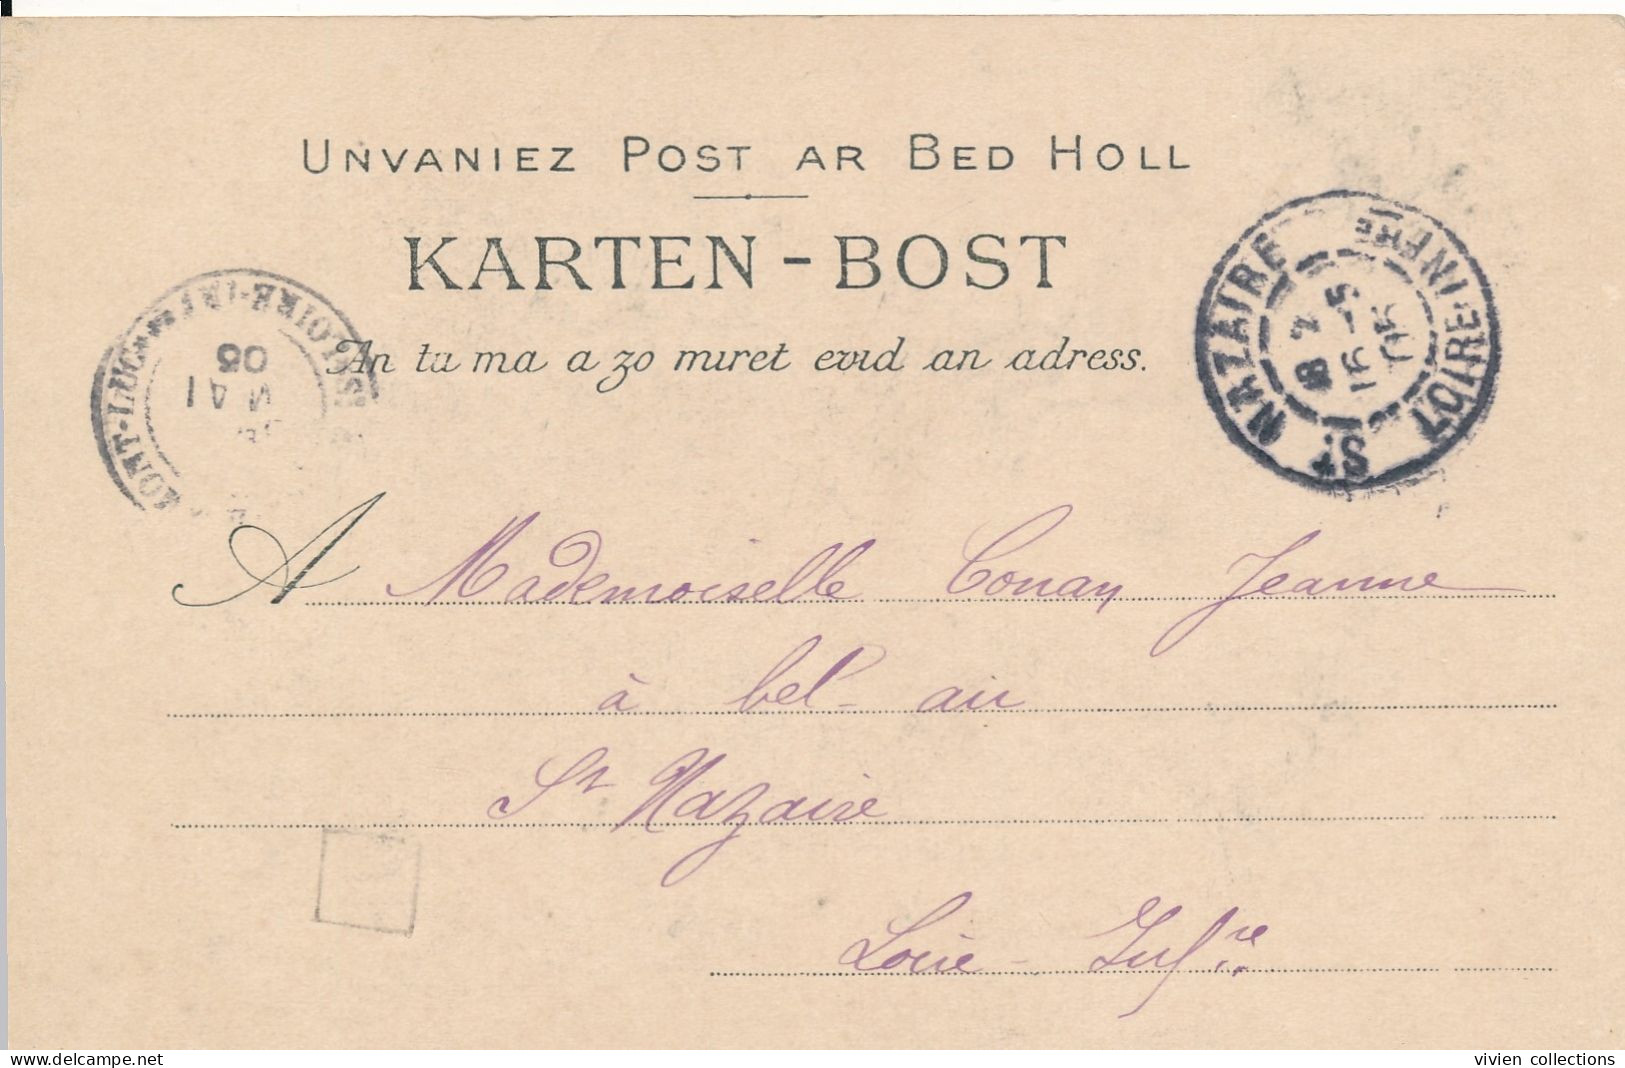 UNVANIEZ POST AR BED HOLL
KARTEN-BOST
An tu ma a zo miret evid an adress.
MAI
05
ST NAZAIRE
LOIRE-INFRE
8
19-5
05
A Mademoiselle Conan Jeanne
à bel-air
St Nazaire
Loire-Infre
delcampe.net
vivien collections